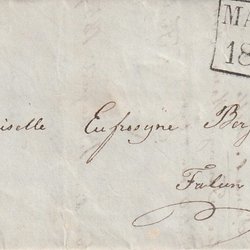 MA
18
iselle Eufrosyne Ber
Falun